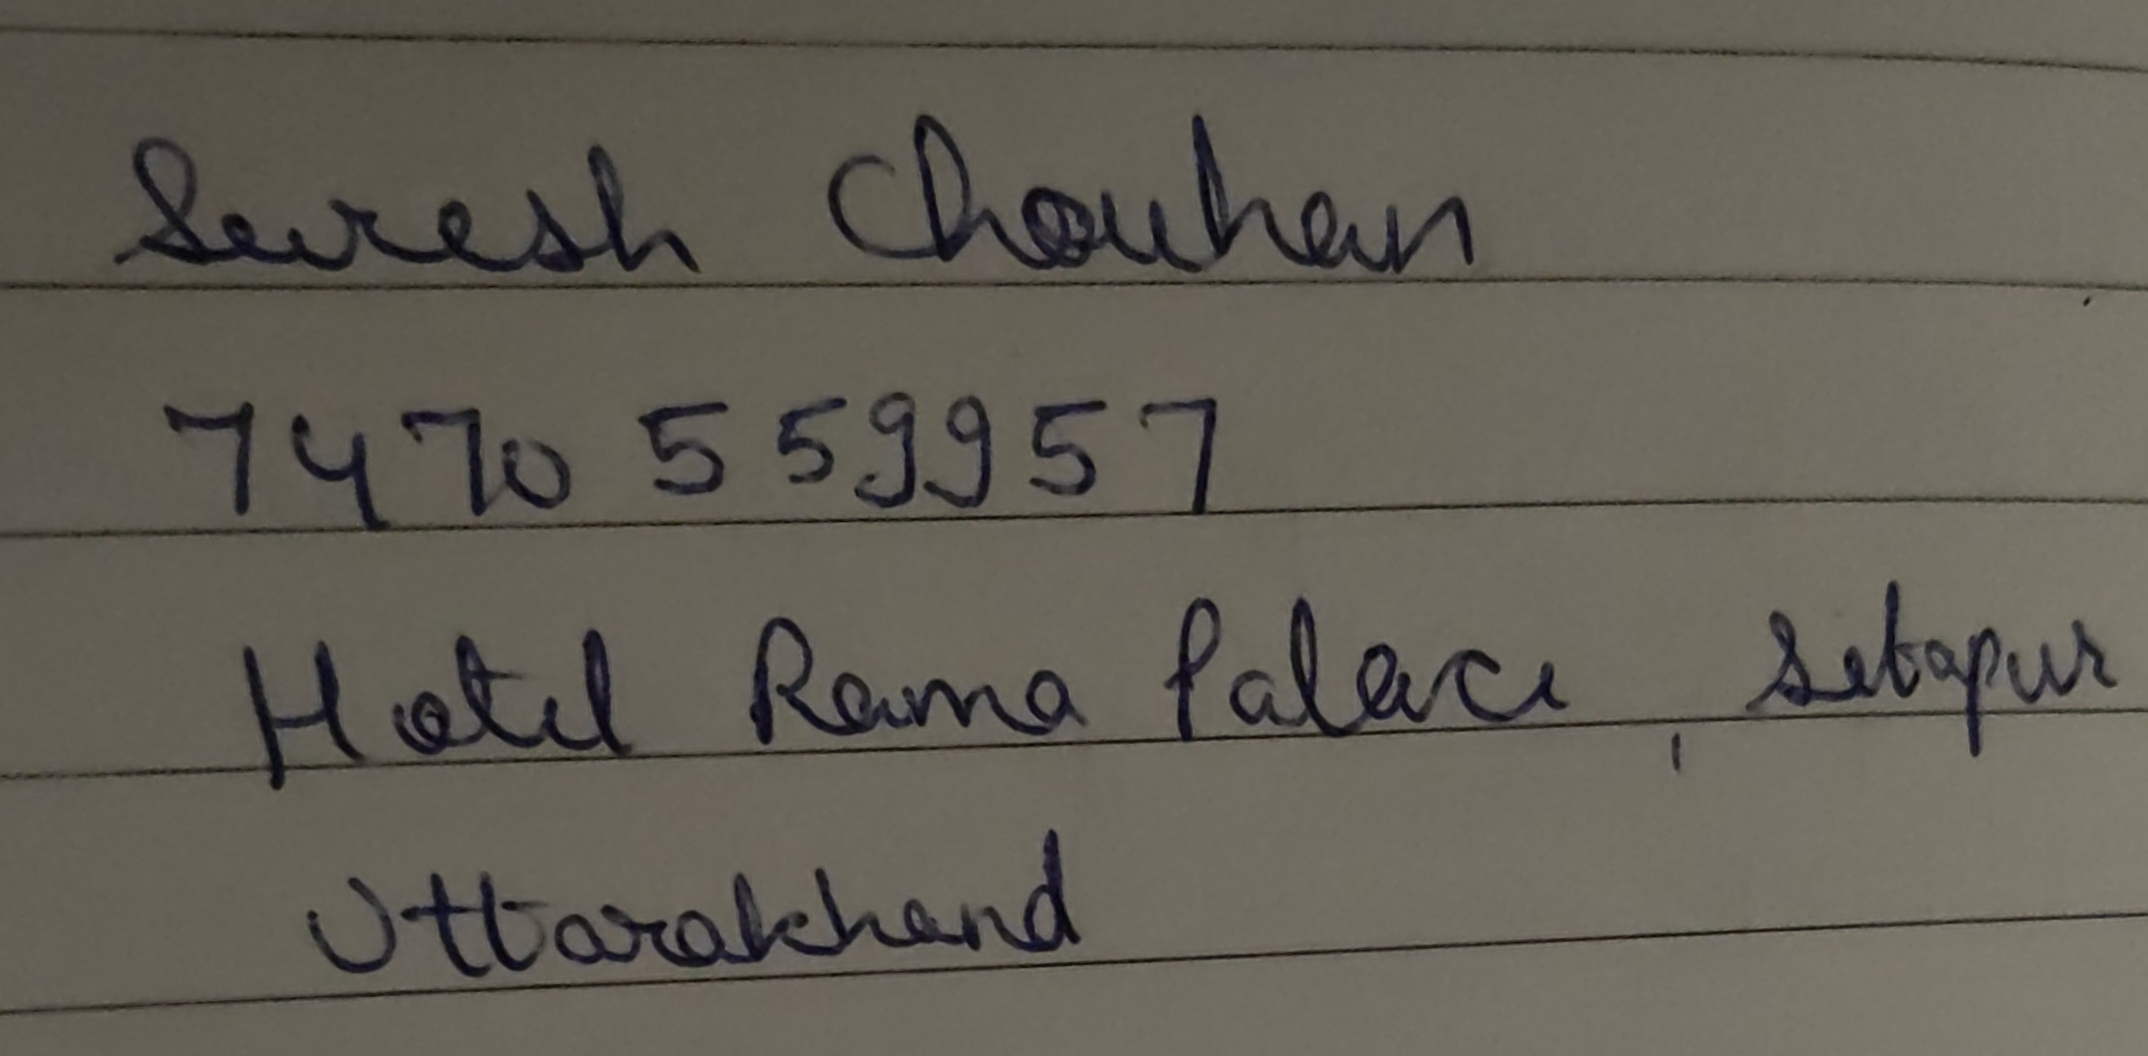 Suresh Chouhan
7470 559957
Hotel Rama Palace, Sitapur
Uttarakhand